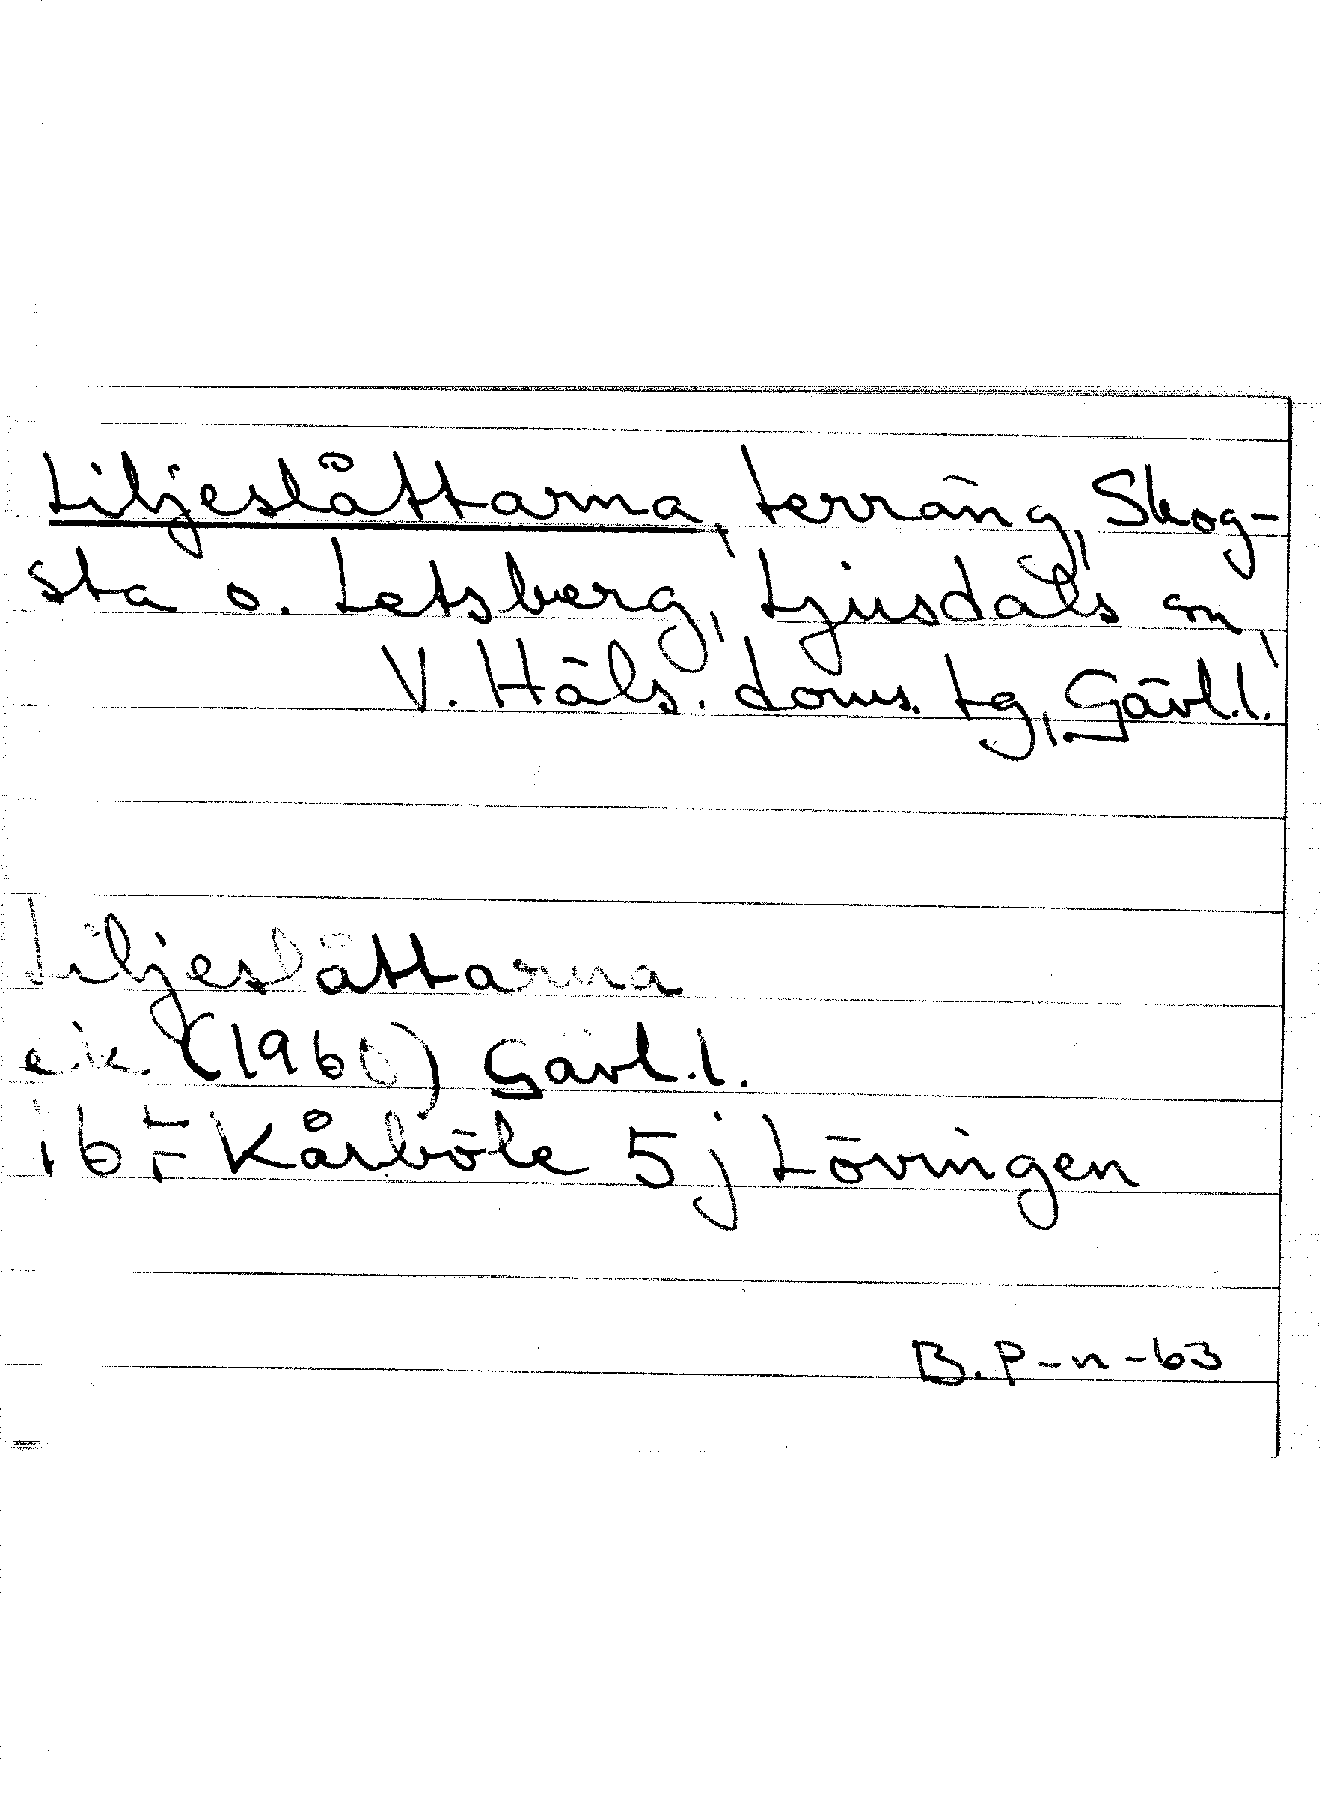 Liljeslåttarna, terräng, Skog-
sta o. Letsberg, Ljusdals sn,
V. Häls. doms. tg, Gävl.l.
Liljeslåttarna
e.k. (1960) Gävl.l.
16 F Kårböle 5j Lövingen
B. P-n -63